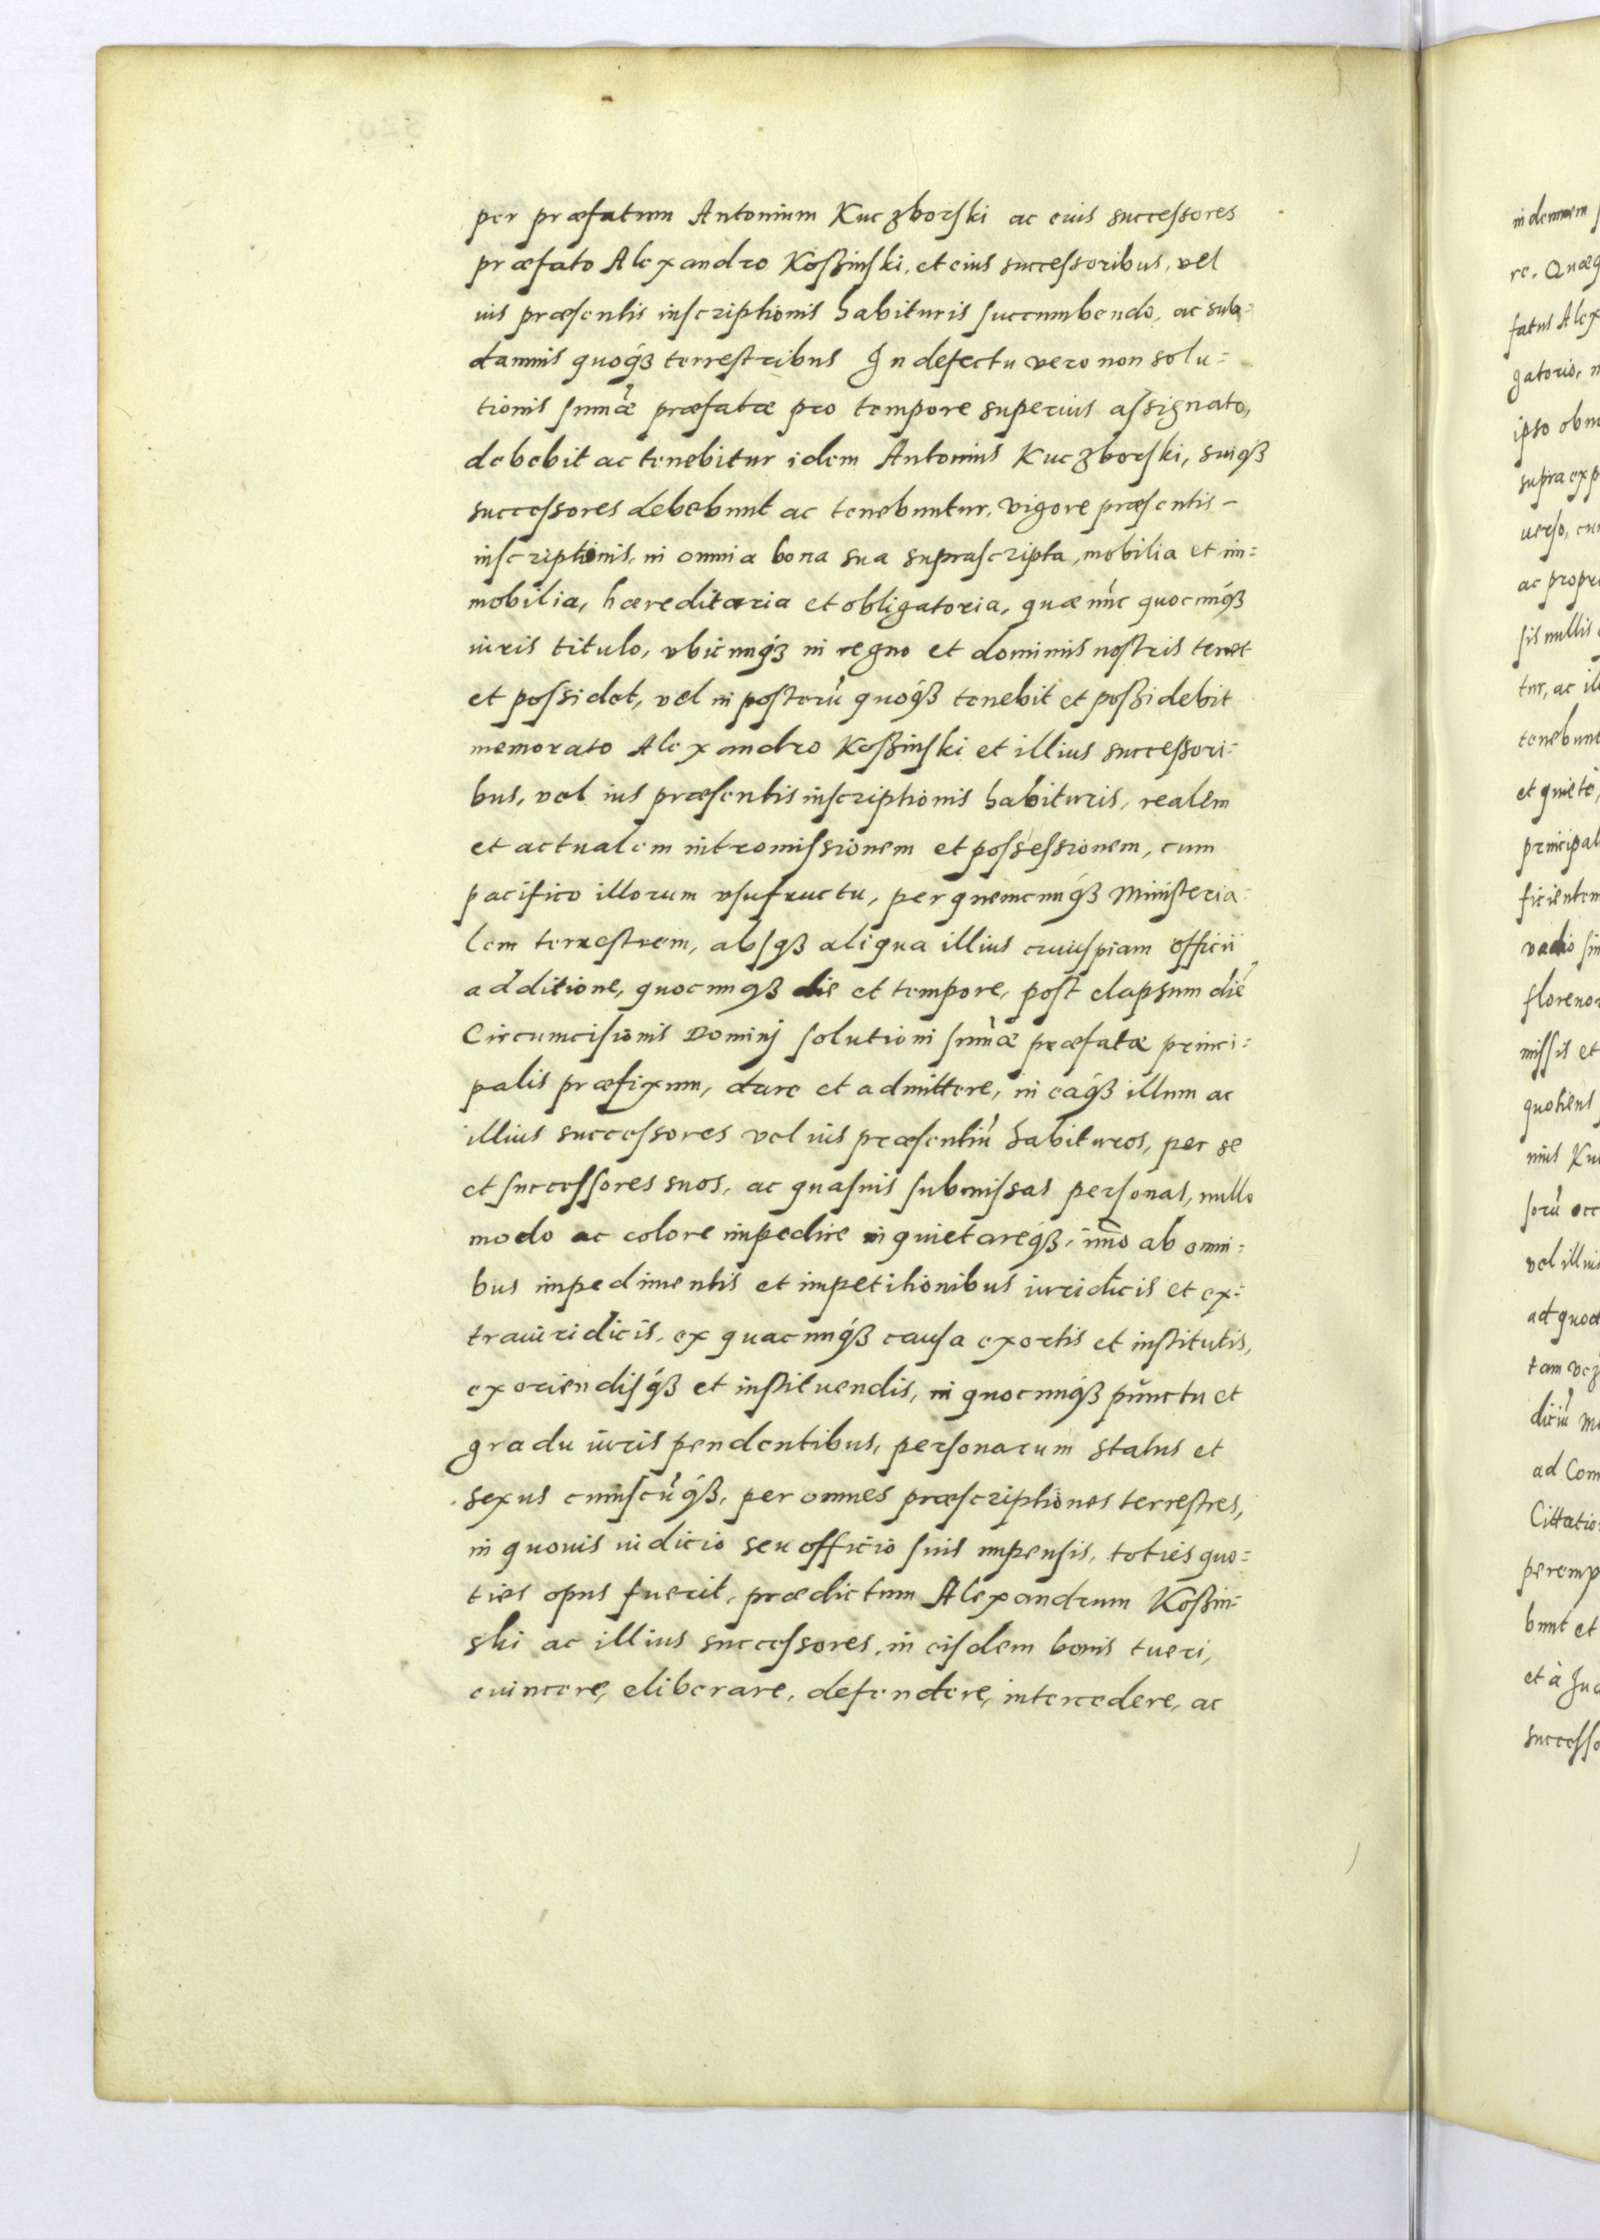 per præfatum Antonium Kuczborski ac eius successores
præfato Alexandro Koßinski, et eius successoribus, vel
ius præsentis inscriptionis habituris succumbendo, ac sub
damnis quoqȝ terrestribus In defectu vero non solu=
tionis sum̃æ præfatæ pro tempore superius assignato,
debebit ac tenebitur idem Antonius Kuczborski, suiqȝ
successores debebunt ac tenebuntur, vigore præsentis –
inscriptionis, in omnia bona sua suprascripta, mobilia et im=
mobilia, hæreditaria et obligatoria, quæ nũc quocunqȝ
iuris titulo, vbicunqȝ in regno et dominiis nostris tenet
et possidet, vel in posterũ quoqȝ tenebit et poßidebit
memorato Alexandro Koßinski et illius successori=
bus, vel ius præsentis inscriptionis habituris, realem
et actualem intromissionem et possessionem, cum
pacifico illorum vsufructu, per quemcunqȝ Ministeria=
lem terrestrem, absqȝ aliqua illius cuiuspiam officii
additione, quocunqȝ die et tempore, post elapsum diẽ
Circumcisionis Dominj solutioni sum̃æ præfatæ princi=
palis præfixum, dare et admittere, in eaqȝ illum ac
illius successores vel ius præsentiũ habituros, per se
et successores suos, ac quasuis submissas personas, nullo
modo ac colore impedire inquietareqȝ, im̃o ab omni=
bus impedimentis et impetitionibus iuridicis et ex=
trauiridicis, ex quacunqȝ causa exortis et institutis,
exoriendisqȝ et instituendis, in quocunqȝ pũnctu et
gradu iuris pendentibus, personarum status et
sexus cuiuscũqȝ, per omnes præscriptiones terrestres,
in quouis iudicio seu officio suis impensis, toties quo=
ties opus fuerit, prædictum Alexandrum Koßin=
ski ac illius successores, in eisdem bonis tueri,
euincere, eliberare, defendere, intercedere, ac